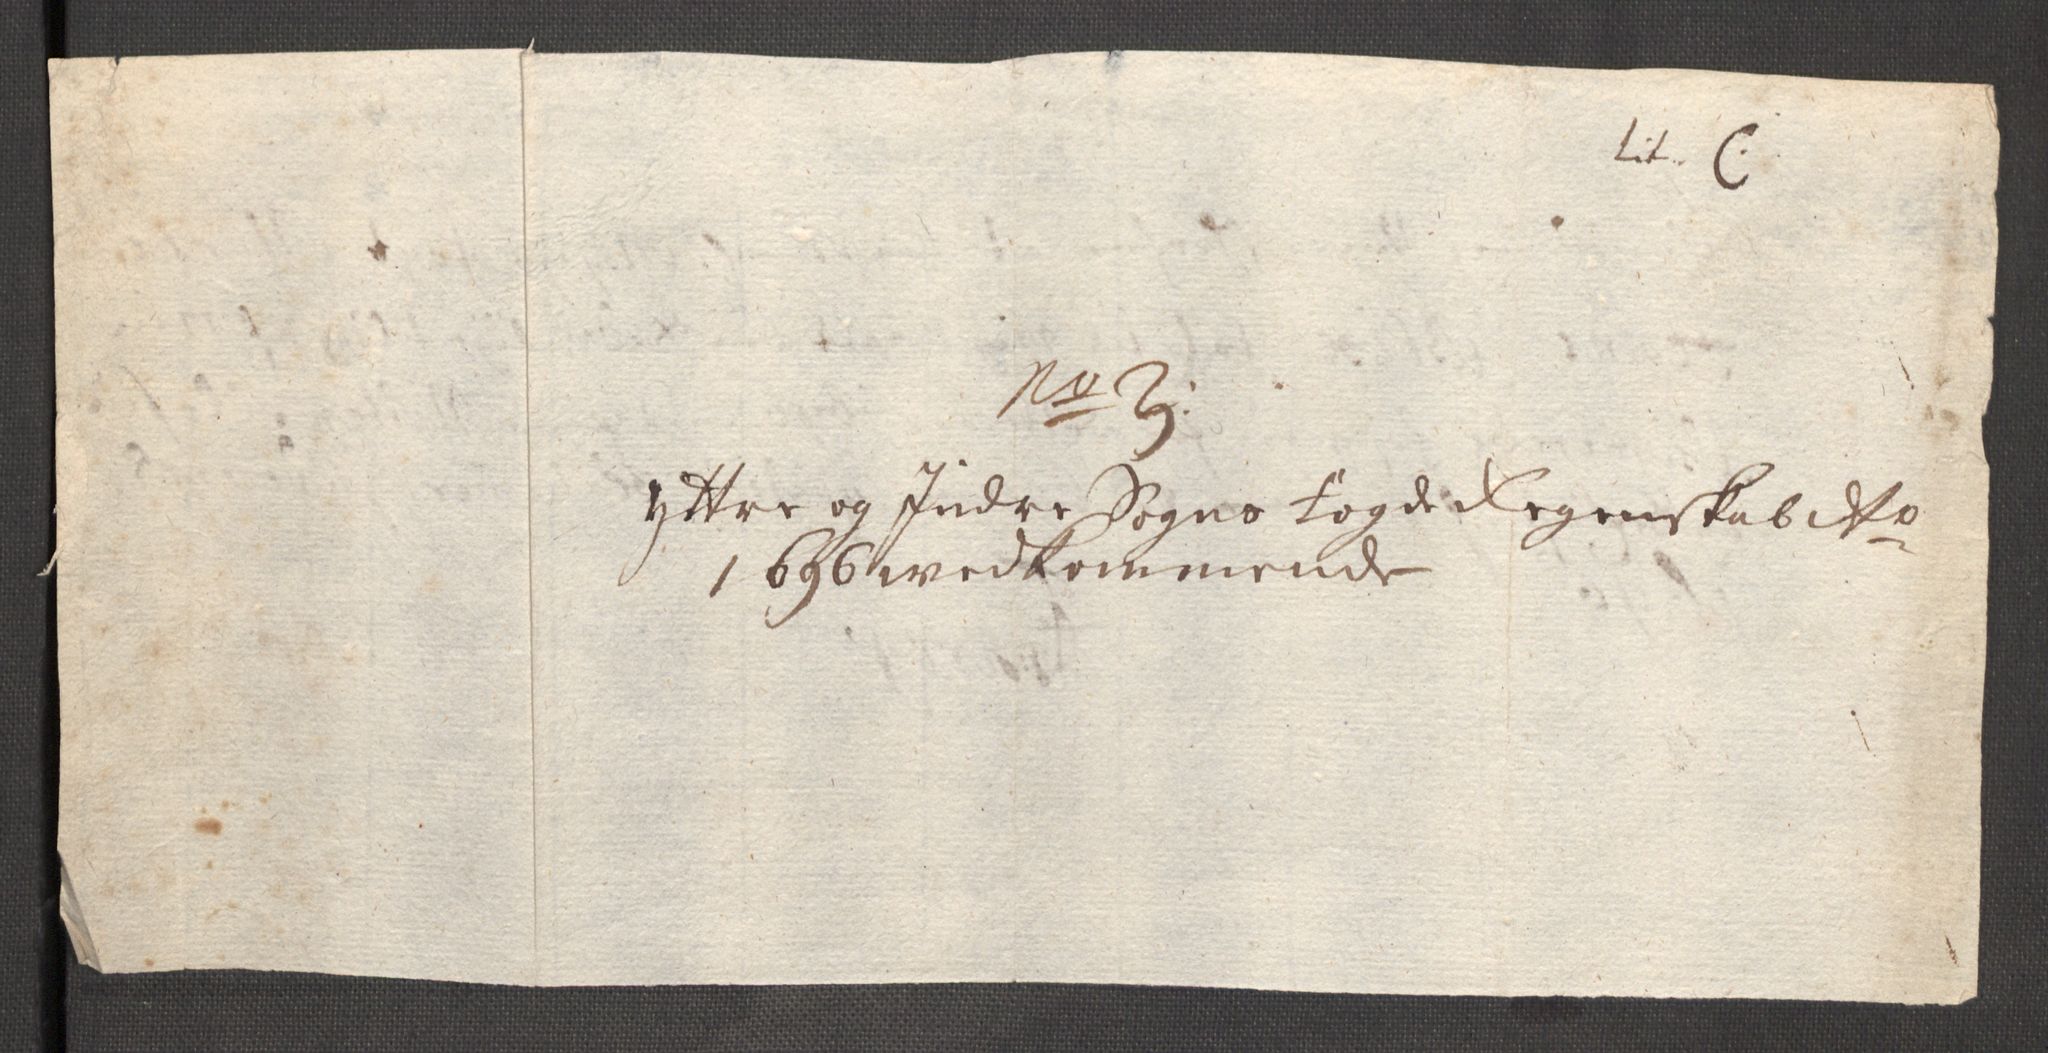 Lit. C.
No 3:
Yttre og Indre Sogns fogde Regenskab Ao
1696 wedkommende